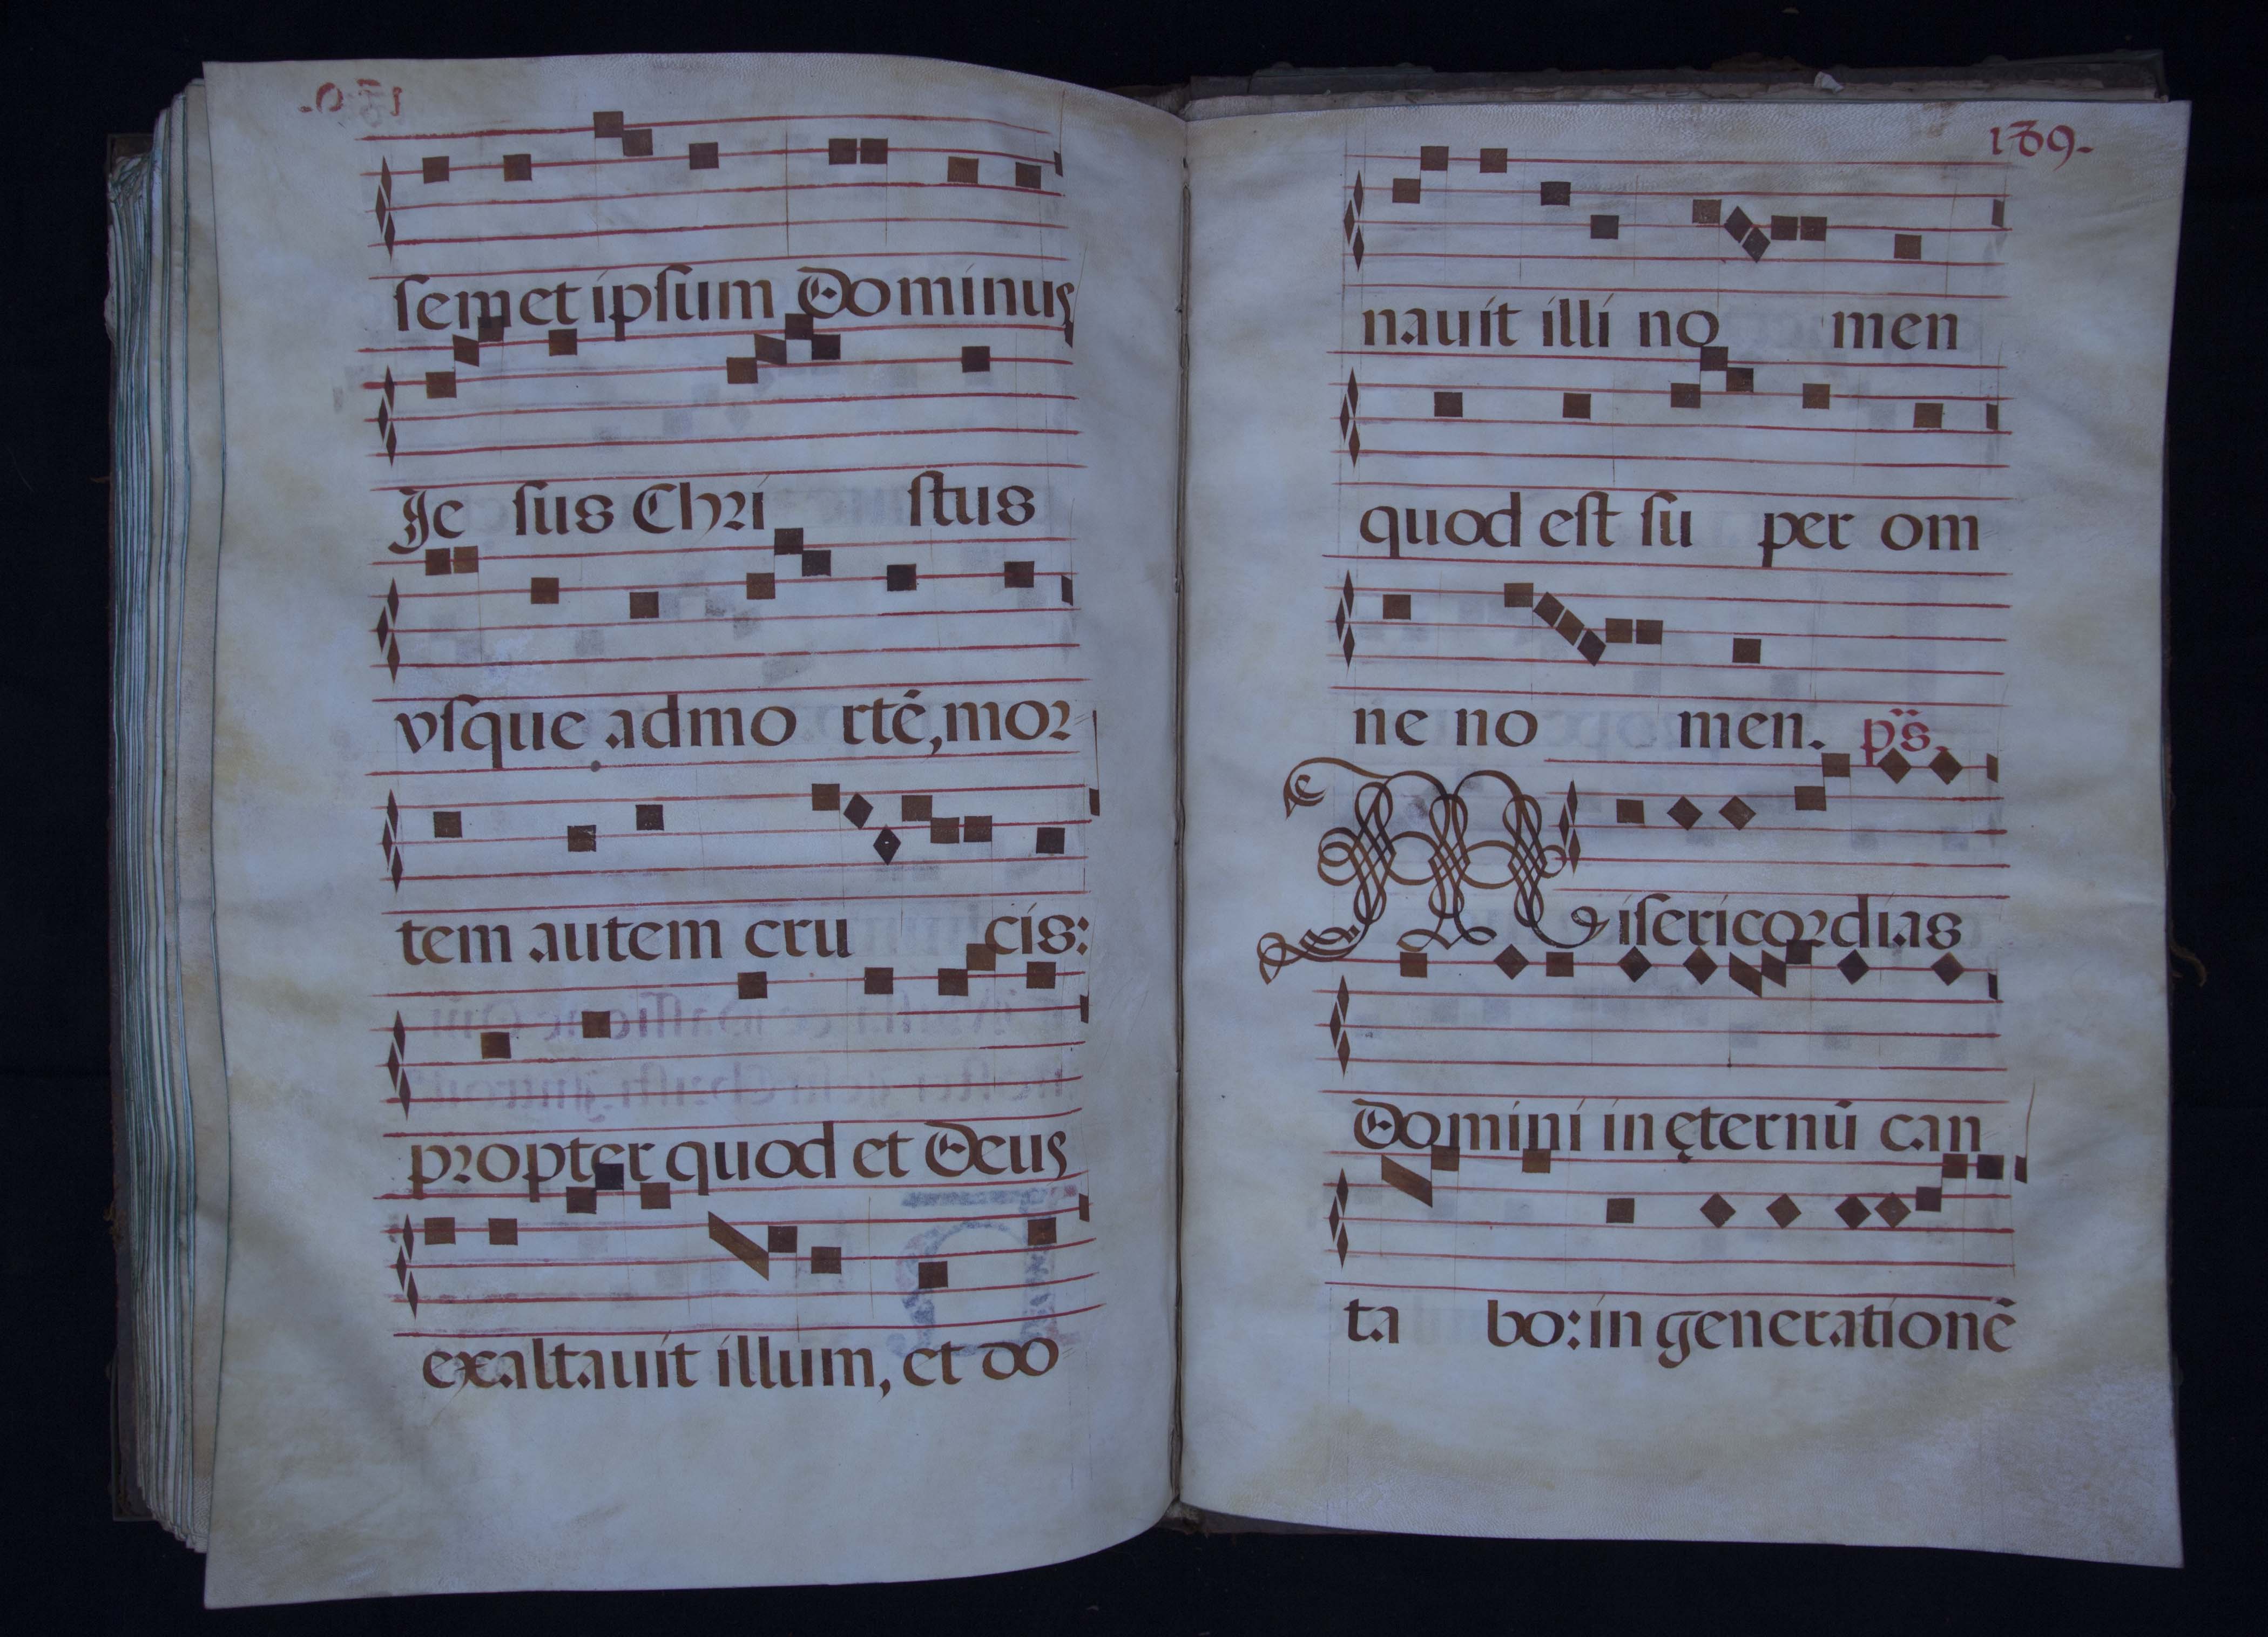 semet ipsum Dominus
Je sus Chri stus
vsque admo rtē, mor
tem autem cru cis:
propter quod et Deus
exaltauit illum, et do
189.
nauit illi no men
quod est su per om
ne no men. ps.
Misericordias
Domini in ęternū can
ta bo: in generationē